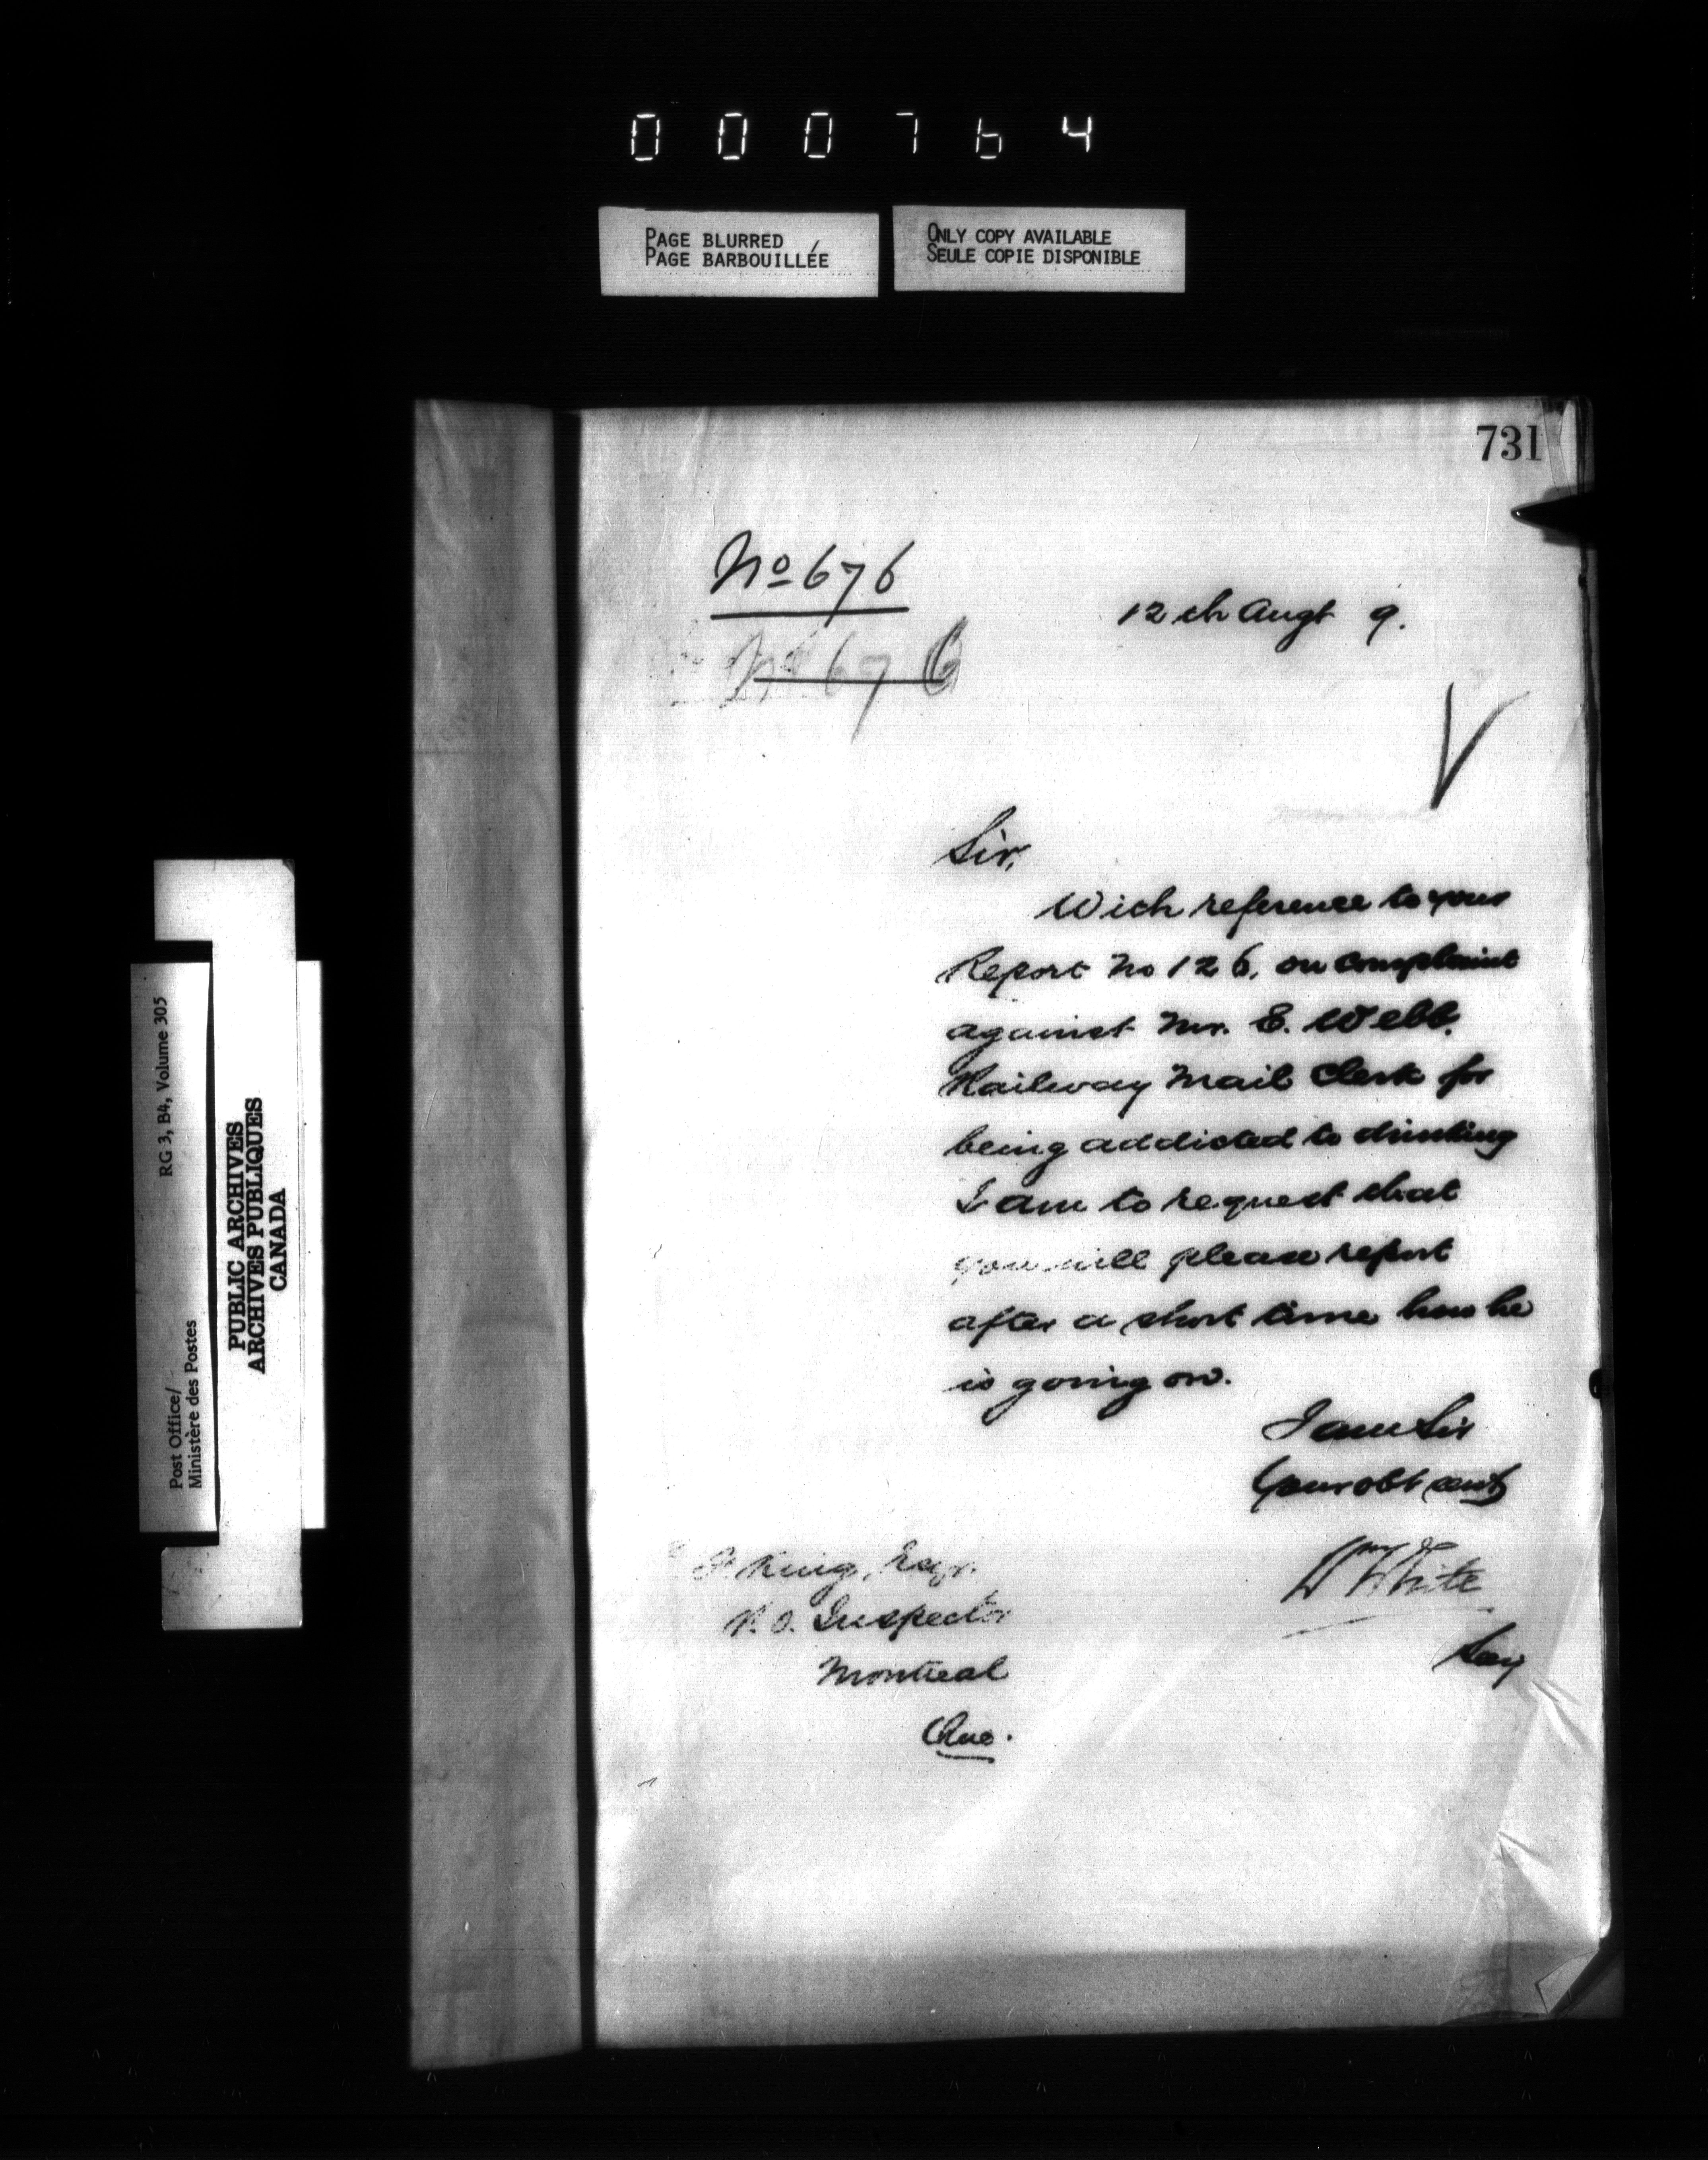 000764
PAGE BLURRED
PAGE BARBOUILLÉE
ONLY COPY AVAILABLE
SEULE COPIE DISPONIBLE
731
No 676
No 676
12th Augt 9.
Sir,
With reference to your
Report No 126, on complaint
against Mr. E. Webb,
Railway Mail Clerk for
being addicted to drinking
I am to request that
you will please report
after a short time how he
is going on.
I am Sir
Your obt servt
Wm White
Secy
King, Esqr.
P. O. Inspector
Montreal
Que.
RG 3, B4, Volume 305
Post Office/
Ministère des Postes
PUBLIC ARCHIVES
ARCHIVES PUBLIQUES
CANADA